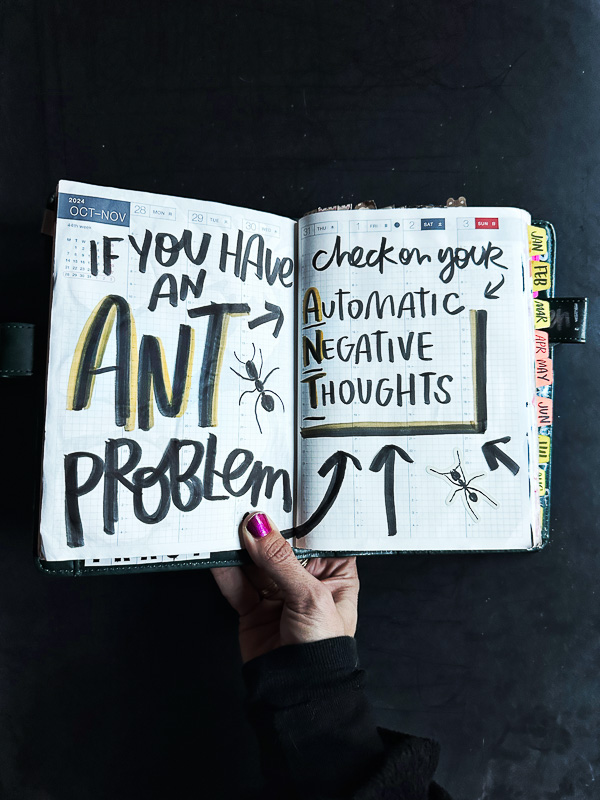 2024
OCT–NOV
44th week
28 MON
29 TUE
30 WED
IF YOU HAVE
AN
ANT
PROBLEM
31 THU
1 FRI
2 SAT
3 SUN
check on your
AUTOMATIC
NEGATIVE
THOUGHTS
JAN
FEB
MAR
APR
MAY
JUN
JUL
AUG